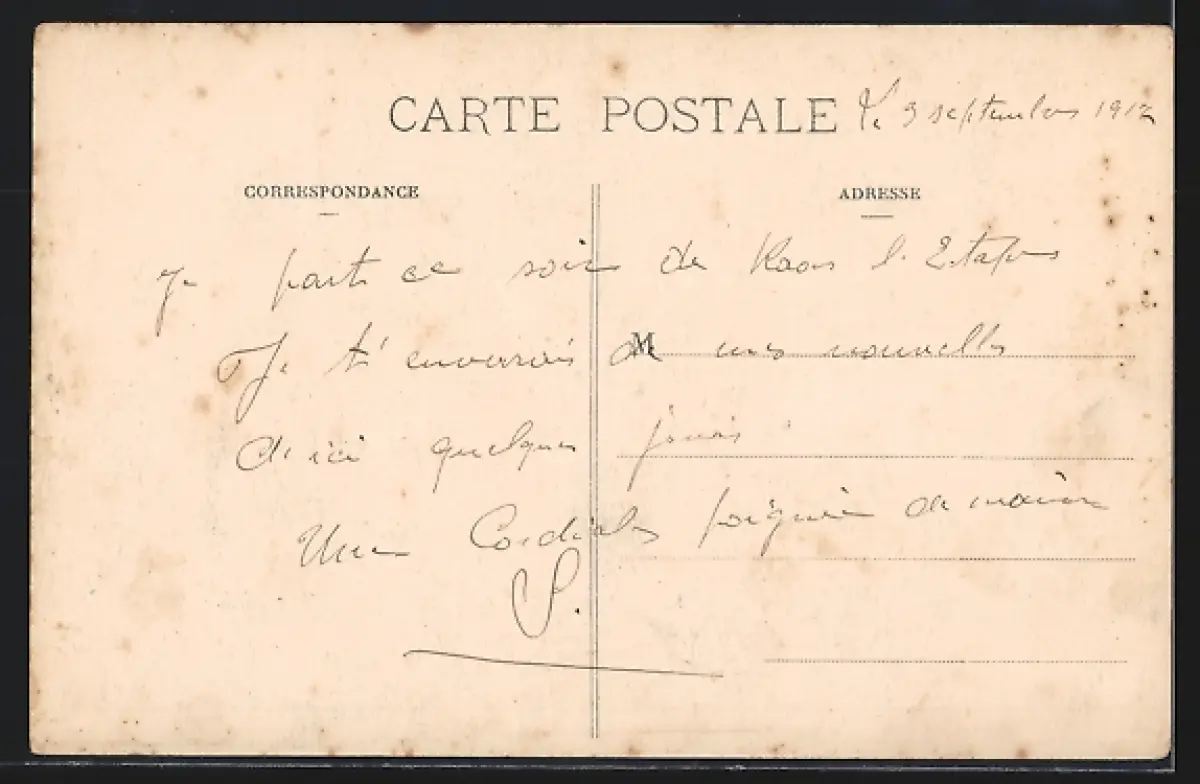 CARTE POSTALE
Le 3 septembre 1912
CORRESPONDANCE
ADRESSE
Je part ce soir de Raon l'Etape
Je t'enverrais de mes nouvelles
M
d'ici quelques jours
Une Cordiale poignée de main
S.